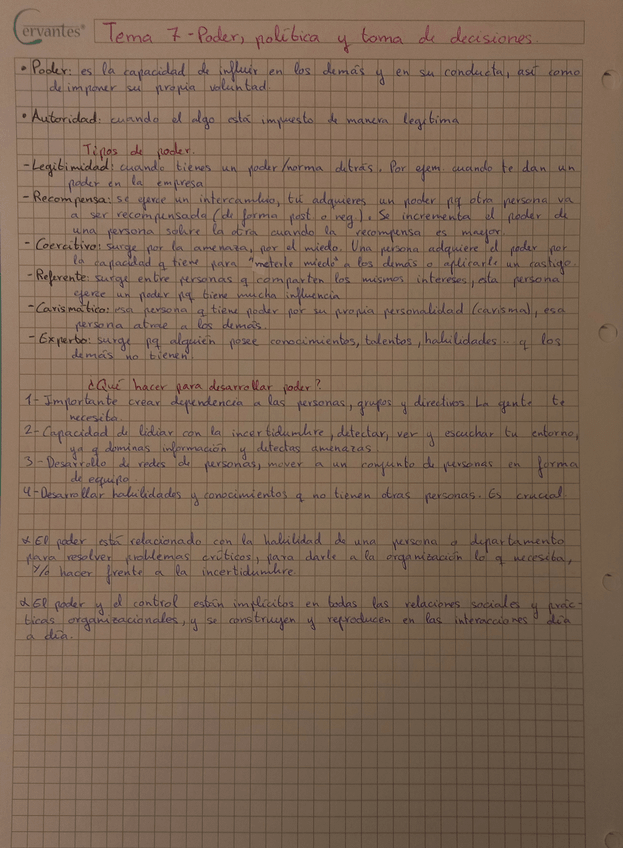 Cervantes®
Tema 7 - Poder, política y toma de decisiones.
• Poder: es la capacidad de influir en los demás y en su conducta, así como
de imponer su propia voluntad
• Autoridad: cuando el algo está impuesto de manera legítima
Tipos de poder.
- Legitimidad: cuando tienes un poder/norma detrás. Por ejem cuando te dan un
poder en la empresa
- Recompensa: se ejerce un intercambio, tú adquieres un poder pq otra persona va
a ser recompensada (de forma post o neg). Se incrementa el poder de
una persona sobre la otra cuando la recompensa es mayor.
- Coercitivo: surge por la amenaza, por el miedo. Una persona adquiere el poder por
la capacidad q tiene para "meterle miedo" a los demás o aplicarle un castigo.
- Referente: surge entre personas q comparten los mismos intereses, esta persona
ejerce un poder pq tiene mucha influencia
- Carismático: esa persona q tiene poder por su propia personalidad (carisma), esa
persona atrae a los demás.
- Experto: surge pq alguien posee conocimientos, talentos, habilidades... q los
demás no tienen
¿Qué hacer para desarrollar poder?
1- Importante crear dependencia a las personas, grupos y directivos. La gente te
necesita.
2- Capacidad de lidiar con la incertidumbre, detectar, ver y escuchar tu entorno,
ya q dominas información y detectas amenazas
3- Desarrollo de redes de personas, mover a un conjunto de personas en forma
de equipo
4- Desarrollar habilidades y conocimientos q no tienen otras personas. Es crucial
* El poder está relacionado con la habilidad de una persona o departamento
para resolver problemas críticos, para darle a la organización lo q necesita,
y/o hacer frente a la incertidumbre
* El poder y el control están implícitos en todas las relaciones sociales y prác-
ticas organizacionales, y se construyen y reproducen en las interacciones día
a día.